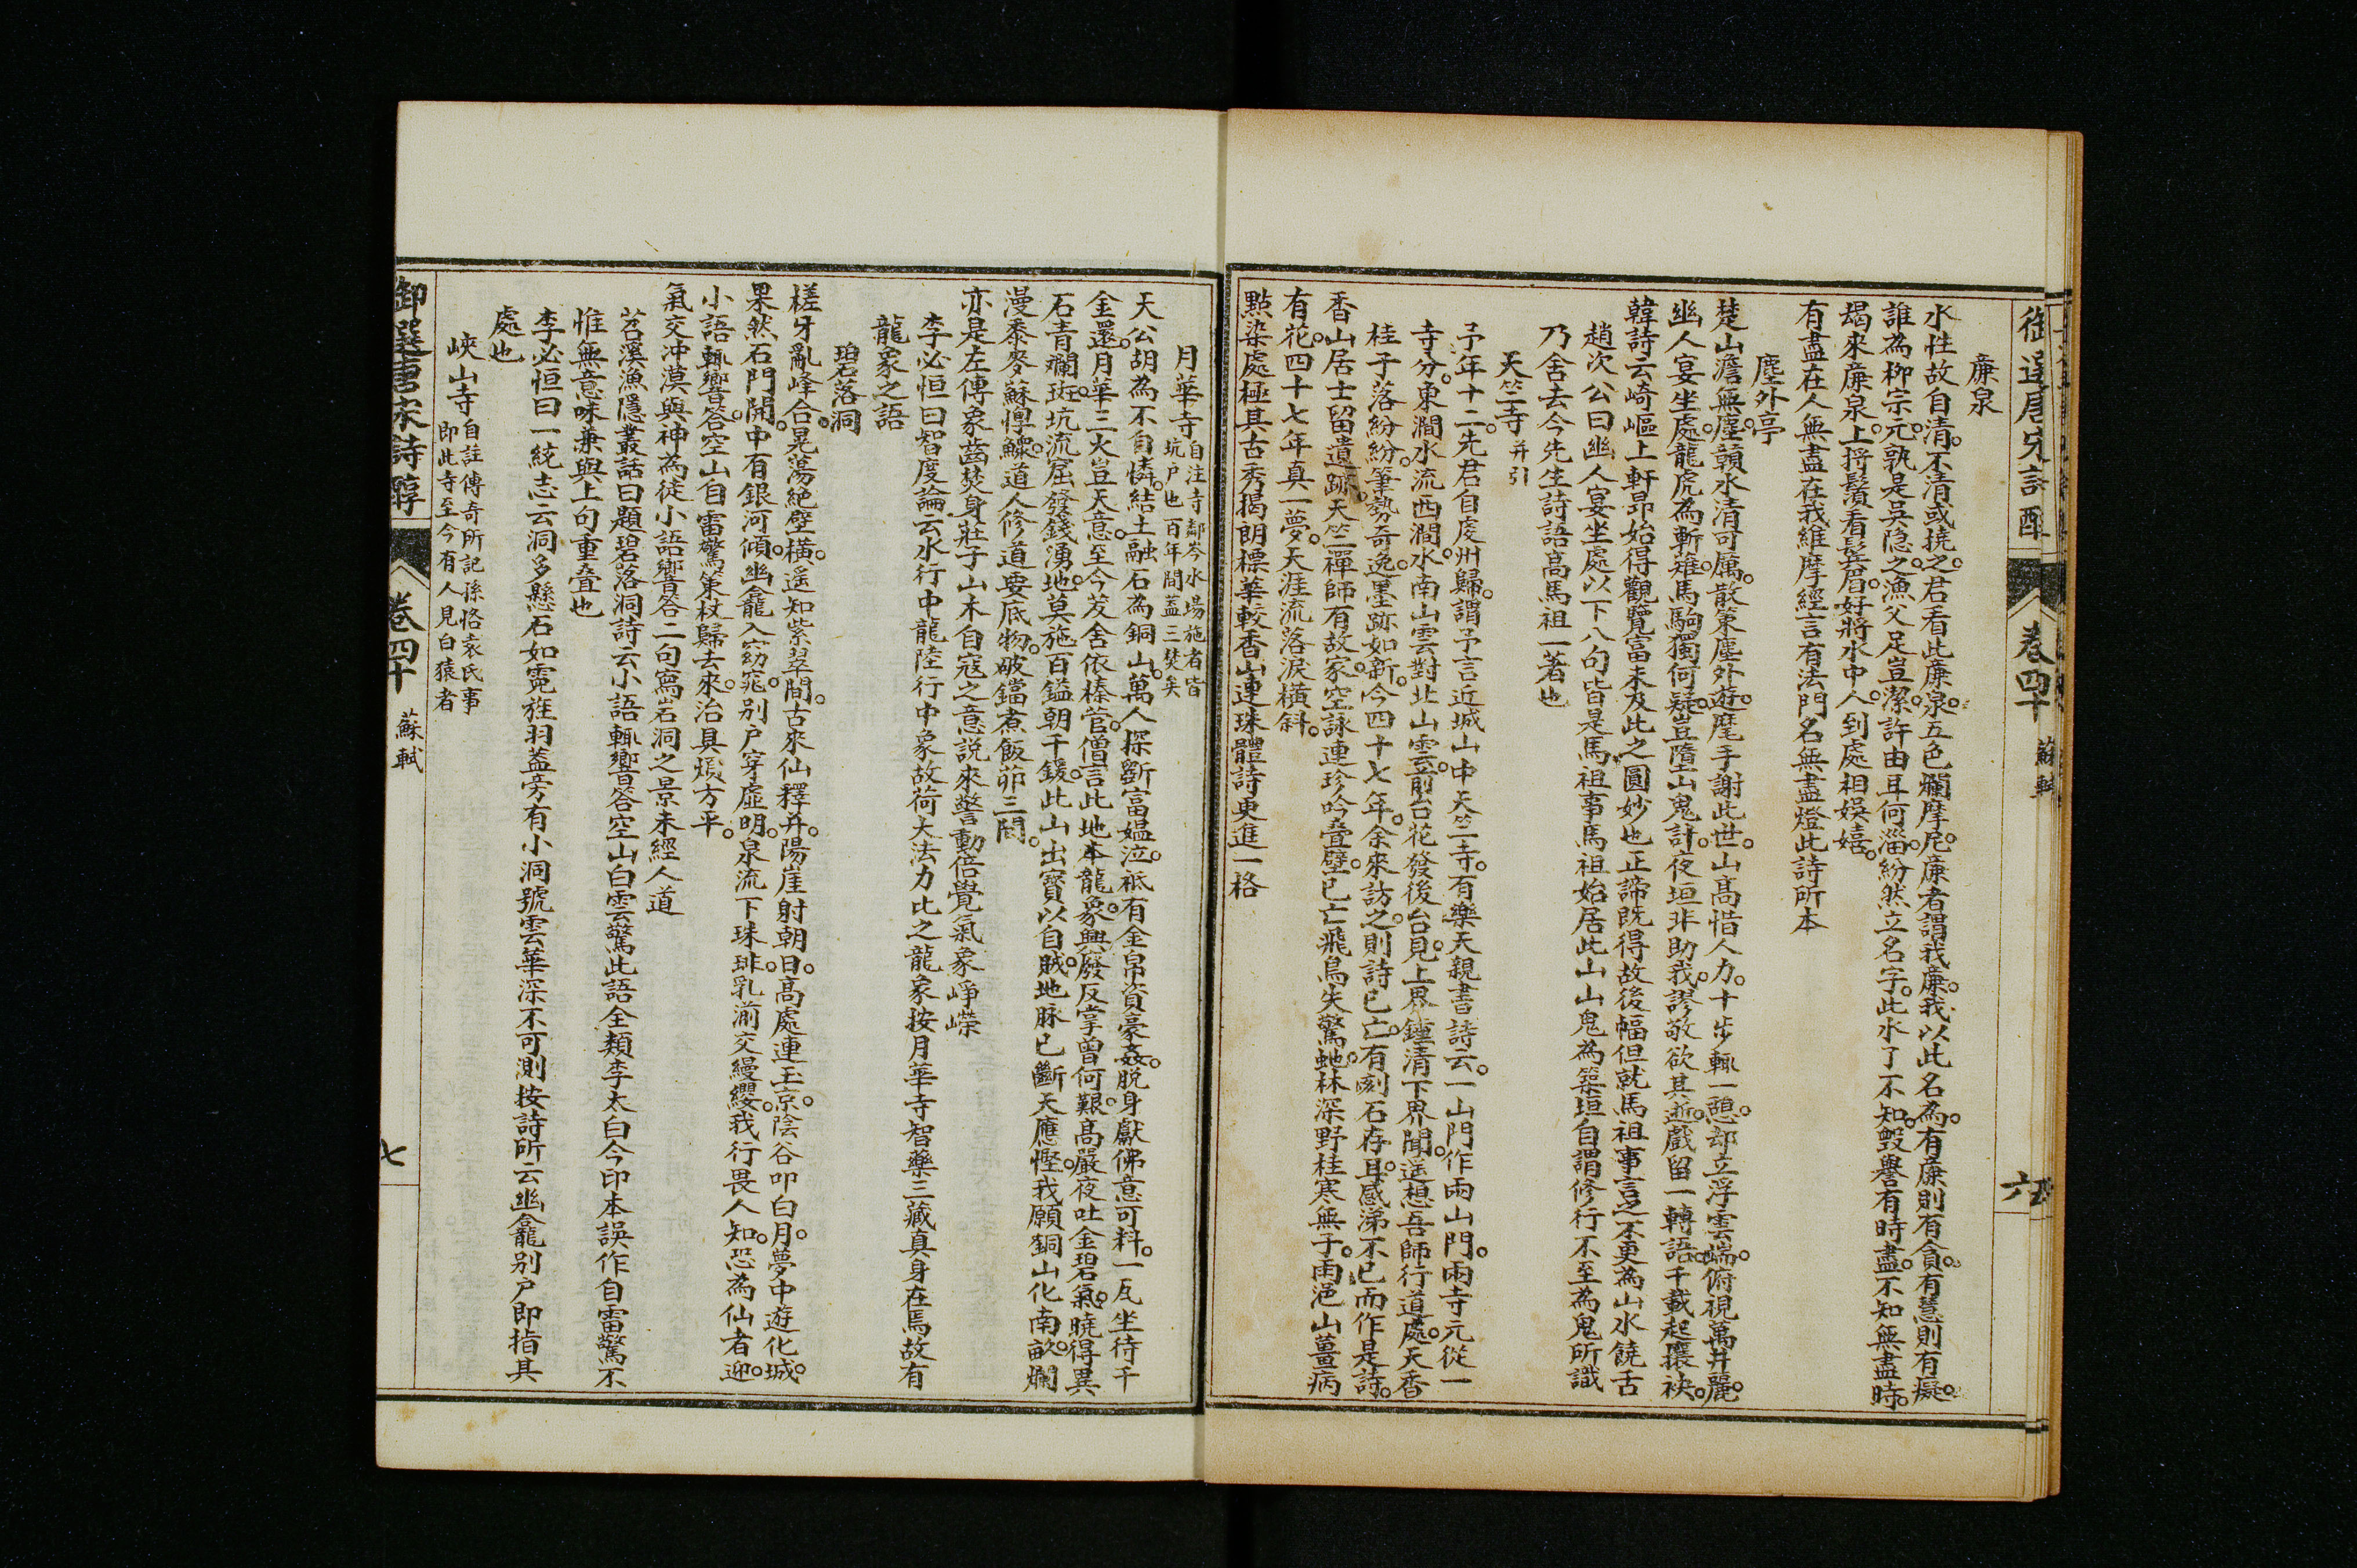 廉泉
水性故自清不清或撓之君看此廉泉五色爛摩尼廉者謂我廉我以此名為有廉則有貪有慧則有癡
誰為柳宗元孰是吳隐之漁父足豈潔許由耳何淄紛然立名字此水了不知毀譽有時盡不知無盡時
朅來廉泉上捋鬚看鬢眉好將水中人到處相娛嬉
有盡在人無盡在我維摩經言有法門名無盡燈此詩所本
塵外亭
楚山澹無塵贛水清可厲散策塵外遊麾手謝此世山高惜人力十步輒一憩却立浮雲端俯視萬井麗
幽人宴坐處龍虎為斬薙馬駒獨何疑豈隨山鬼計夜垣非助我謬敬欲其逝戲留一轉語千載起攘袂
韓詩云崎嶇上軒昂始得觀覽富未及此之圓妙也正諦既得故後幅但就馬祖事言之不更為山水饒舌
趙次公曰幽人宴坐處以下八句皆是馬祖事馬祖始居此山山鬼為築垣自謂修行不至為鬼所識
乃舍去今先生詩語高馬祖一著也
天竺寺 并引
予年十二先君自虔州歸謂予言近城山中天竺寺有樂天親書詩云一山門作兩山門兩寺元從一
寺分東澗水流西澗水南山雲對北山雲前台花發後台見上界鍾清下界聞遥想吾師行道處天香
桂子落紛紛筆勢奇逸墨跡如新今四十七年余來訪之則詩已亡有刻石存耳感涕不已而作是詩
香山居士留遺跡天竺禪師有故家空詠連珍吟疊璧已亡飛鳥失驚蛇林深野桂寒無子雨浥山薑病
有花四十七年真一夢天涯流落淚橫斜
點染處極其古秀揭朗標華較香山連珠體詩更進一格
御選唐宋詩醇 卷四十 蘇軾 六
月華寺 自注寺鄰岑水場施者皆坑戶也百年間蓋三焚矣
天公胡為不自憐結土融石為銅山萬人探斵富媪泣祗有金帛資豪姦脫身獻佛意可料一瓦坐待千
金還月華三火豈天意至今茇舍依榛菅僧言此地本龍象興廢反掌曾何艱高嚴夜吐金碧氣曉得異
石青斕斑坑流窟發錢湧地莫施百鎰朝千鍰此山出寶以自賊地脉已斷天應慳我願銅山化南畝爛
漫黍麥蘇惸鰥道人修道要底物破鐺煮飯茆三間
亦是左傳象齒焚身莊子山木自寇之意說來警動倍覺氣象崢嶸
李必恒曰智度論云水行中龍陸行中象故荷大法力比之龍象按月華寺智藥三藏真身在焉故有
龍象之語
碧落洞
槎牙亂峰合晃蕩絕壁橫遥知紫翠間古來仙釋并陽崖射朝日高處連玉京陰谷叩白月夢中遊化城
果然石門開中有銀河傾幽龕入窈窕别户穿虚明泉流下珠琲乳湔交縵纓我行畏人知恐為仙者迎
小語輒響答空山自雷驚策杖歸去來治具煩方平
氣交冲漠與神為徒小語響答二句寫岩洞之景未經人道
苕溪漁隱叢話曰題碧落洞詩云小語輒響答空山白雲驚此語全類李太白今印本誤作自雷驚不
惟無意味兼與上句重疊也
李必恒曰一統志云洞多懸石如霓旌羽葢旁有小洞號雲華深不可測按詩所云幽龕别户即指其
處也
峽山寺 自註傳奇所記孫恪袁氏事即此寺至今有人見白猿者
御選唐宋詩醇 卷四十 蘇軾 七